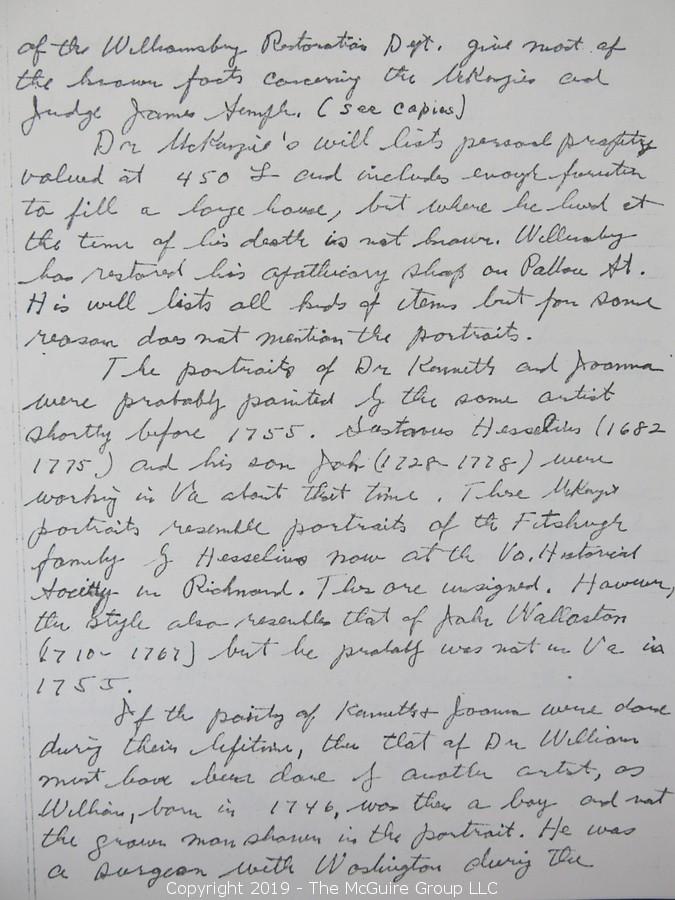 of the Williamsburg Restoration Dept. give most of
the known facts concerning the McKenzies and
Judge James Semple. (see copies)
Dr McKenzie's will lists personal property
valued at 450 £ and includes enough furniture
to fill a large house, but where he lived at
the time of his death is not known. Williamsburg
has restored his apothecary shop on Pallace St.
His will lists all kinds of items but for some
reason does not mention the portraits.
The portraits of Dr Kenneth and Joanna
were probably painted by the same artist
shortly before 1755. Gustavus Hesselius (1682
1775) and his son John (1728-1778) were
working in Va about that time. These McKenzie
portraits resemble portraits of the Fitzhugh
family by Hesselius now at the Va. Historical
Society in Richmond. They are unsigned. However,
the style also resembles that of John Wallaston
(1710-1767) but he probably was not in Va in
1755.
If the portraits of Kenneth & Joanna were done
during their lifetime, then that of Dr William
must have been done by another artist, as
William, born in 1746, was then a boy and not
the grown man shown in the portrait. He was
a surgeon with Washington during the
Copyright 2019 - The McGuire Group LLC